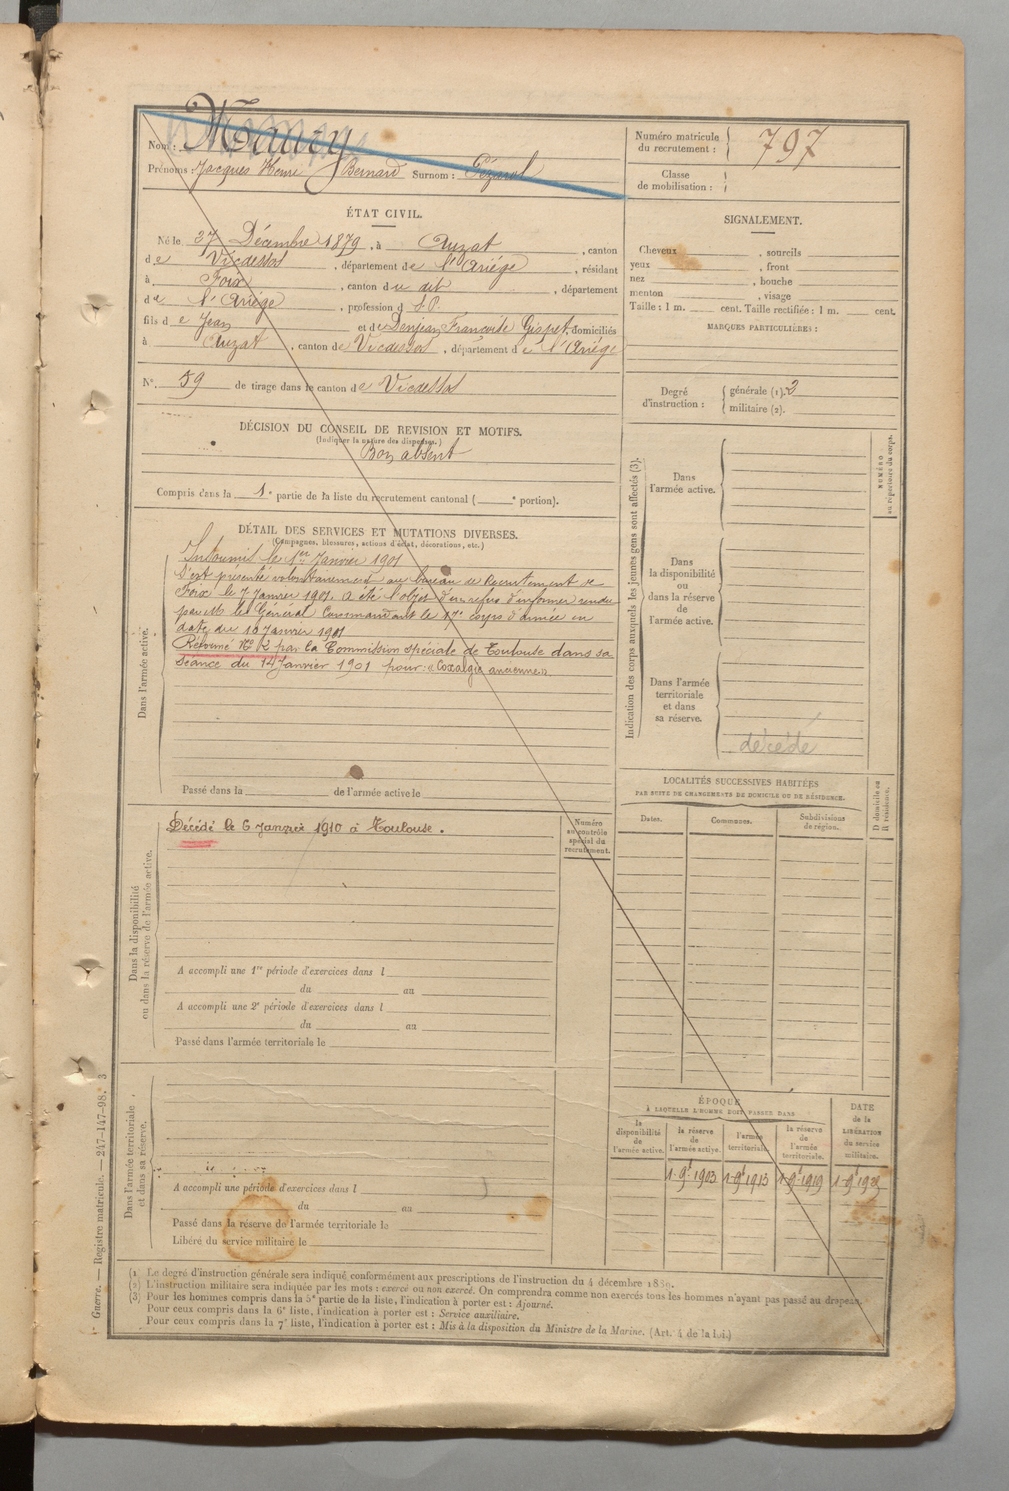 Nom : Maury
Numéro matricule du recrutement : 797
Prénoms : Jacques Henri Bernard Surnom :
Classe de mobilisation :
ÉTAT CIVIL.
Né le 27 Décembre 1879, à Auzat, canton
de Vicdessos, département de l'Ariége, résidant
à Foix, canton du dit, département
de l'Ariége, profession d S.P.
fils de Jean et de Denjean Françoise Gispet, domiciliés
à Auzat, canton de Vicdessos, département de l'Ariége
N° 59 de tirage dans le canton de Vicdessos
SIGNALEMENT.
Cheveux , sourcils
yeux , front
nez , bouche
menton , visage
Taille : 1 m. cent. Taille rectifiée : 1 m. cent.
MARQUES PARTICULIÈRES :
Degré d'instruction : générale (1). 3
militaire (2).
DÉCISION DU CONSEIL DE REVISION ET MOTIFS.
(Indiquer la nature des dispenses.)
Bon absent
Compris dans la 1e partie de la liste du recrutement cantonal ( e portion).
DÉTAIL DES SERVICES ET MUTATIONS DIVERSES.
(Campagnes, blessures, actions d'éclat, décorations, etc.)
Dans l'armée active.
Insoumis le 1er Janvier 1901
S'est présenté volontairement au bureau de Recrutement de
Foix le 7 Janvier 1901. A été l'objet d'un refus d'informer rendu
par M. le Général Commandant le 17e corps d'armée en
date du 10 Janvier 1901
Réformé N° 2 par la Commission spéciale de Toulouse dans sa
séance du 14 Janvier 1901 pour : « Coxalgie ancienne »
Passé dans la de l'armée active le
Indication des corps auxquels les jeunes gens sont affectés (3).
NUMÉRO au répertoire du corps.
Dans l'armée active.
Dans la disponibilité ou dans la réserve de l'armée active.
Dans l'armée territoriale et dans sa réserve.
décédé
LOCALITÉS SUCCESSIVES HABITÉES
PAR SUITE DE CHANGEMENTS DE DOMICILE OU DE RÉSIDENCE.
Dates. Communes. Subdivisions de région. D domicile ou R résidence.
Dans la disponibilité ou dans la réserve de l'armée active.
Décédé le 6 Janvier 1910 à Toulouse.
Numéro au contrôle spécial du recrutement.
A accompli une 1re période d'exercices dans l
du au
A accompli une 2e période d'exercices dans l
du au
Passé dans l'armée territoriale le
Dans l'armée territoriale et dans sa réserve.
A accompli une période d'exercices dans l
du au
Passé dans la réserve de l'armée territoriale le
Libéré du service militaire le
ÉPOQUE
À LAQUELLE L'HOMME DOIT PASSER DANS
la disponibilité de l'armée active.
la réserve de l'armée active.
l'armée territoriale.
la réserve de l'armée territoriale.
DATE de la LIBÉRATION du service militaire.
1-9e 1903 1-9e 1913 1-9e 1919
(1) Le degré d'instruction générale sera indiqué conformément aux prescriptions de l'instruction du 4 décembre 1889.
(2) L'instruction militaire sera indiquée par les mots : exercé ou non exercé. On comprendra comme non exercés tous les hommes n'ayant pas passé au drapeau.
(3) Pour les hommes compris dans la 5e partie de la liste, l'indication à porter est : Ajourné.
Pour ceux compris dans la 6e liste, l'indication à porter est : Service auxiliaire.
Pour ceux compris dans la 7e liste, l'indication à porter est : Mis à la disposition du Ministre de la Marine. (Art. 4 de la Loi.)
Guerre. — Registre matricule. — 247-147-98. 3